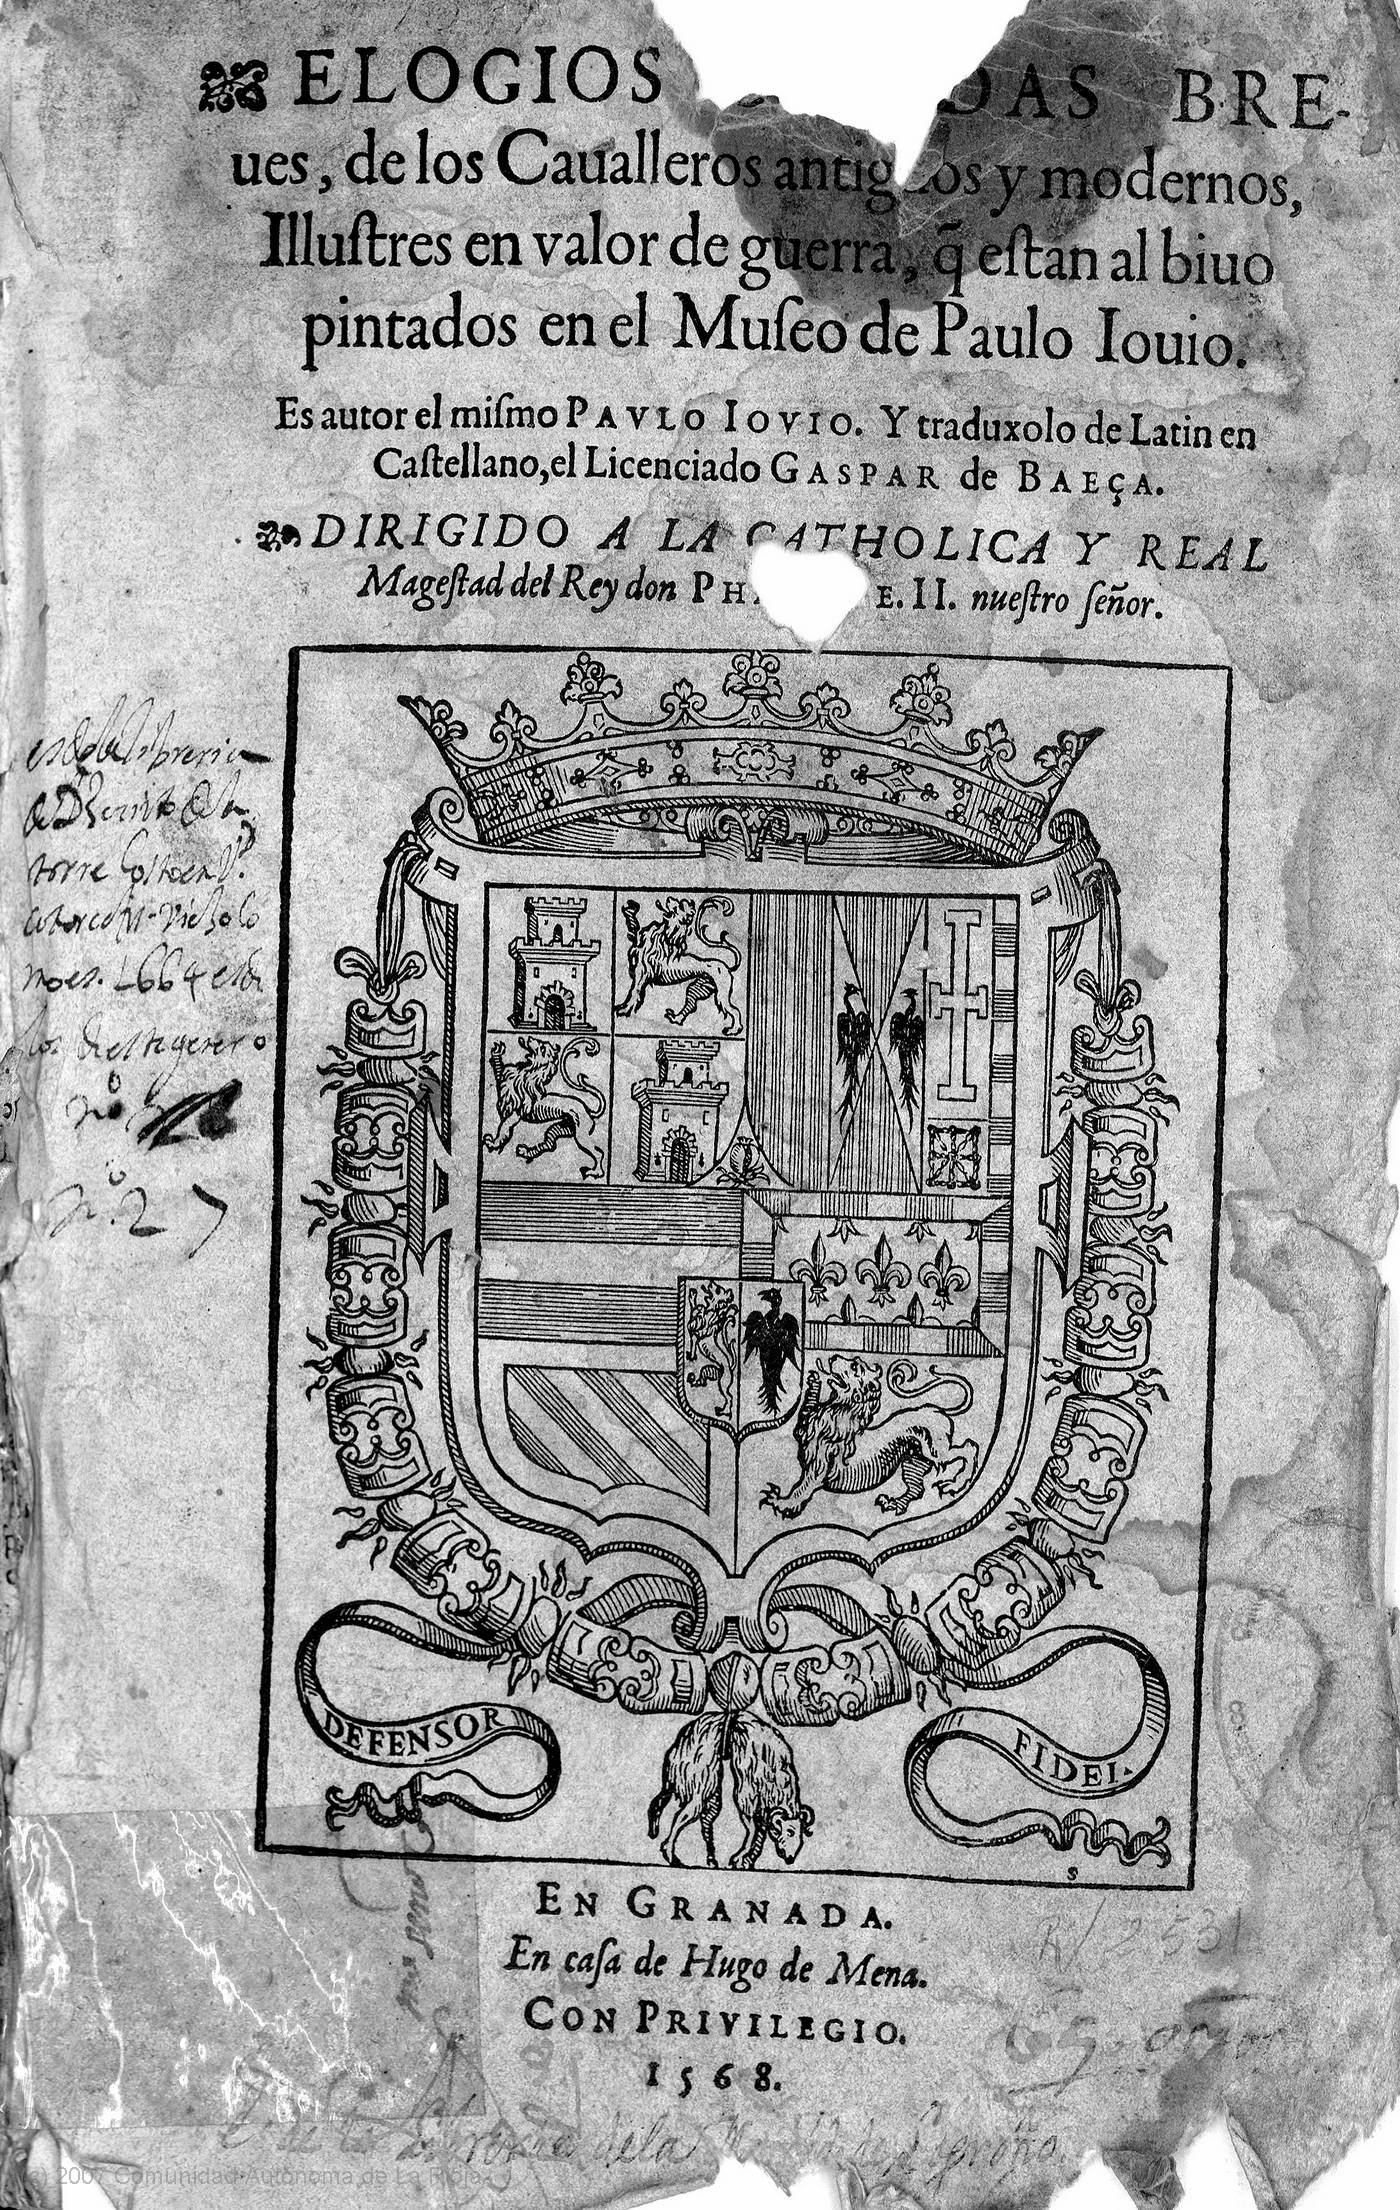 ELOGIOS DAS BRE-
ues, de los Caualleros antiguos y modernos,
Illuſtres en valor de guerra, q̃ eſtan al biuo
pintados en el Muſeo de Paulo Iouio.
Es autor el miſmo PAVLO IOVIO. Y traduxolo de Latin en
Caſtellano, el Licenciado GASPAR de BAEÇA.
DIRIGIDO A LA CATHOLICA Y REAL
Mageſtad del Rey don PH E. II. nueſtro ſeñor.
torre
1664
nº 27
DEFENSOR
FIDEI.
s
EN GRANADA.
En caſa de Hugo de Mena.
CON PRIVILEGIO.
1568.
R/ 2531
dela
(c) 2007 Comunidad Autónoma de La Rioja